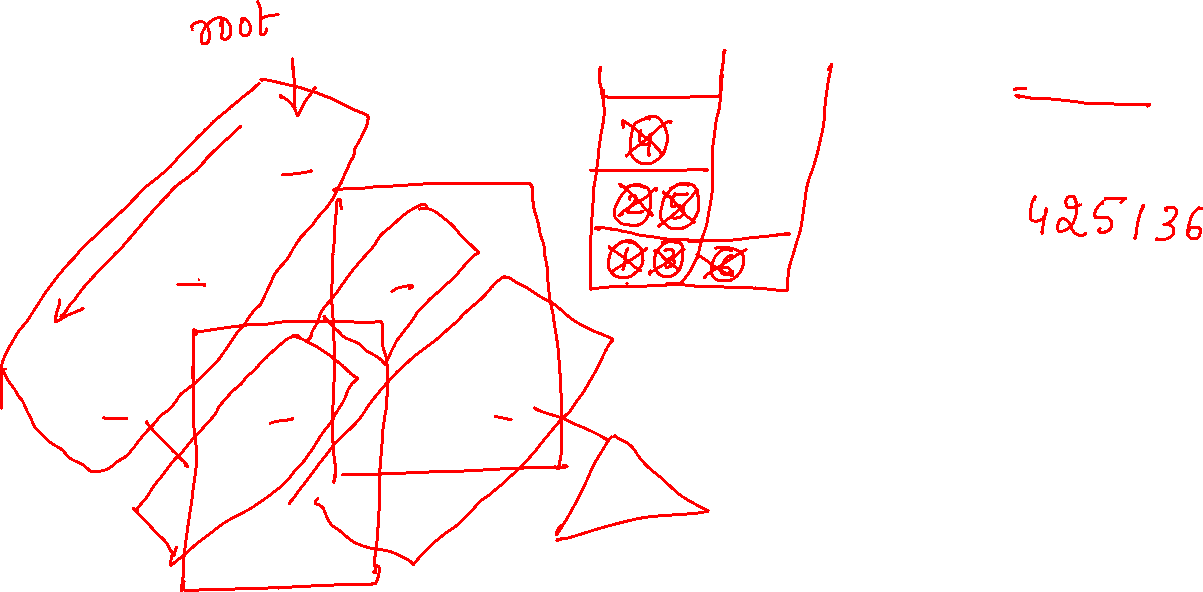 root
4
2 5
1 3 6
425136